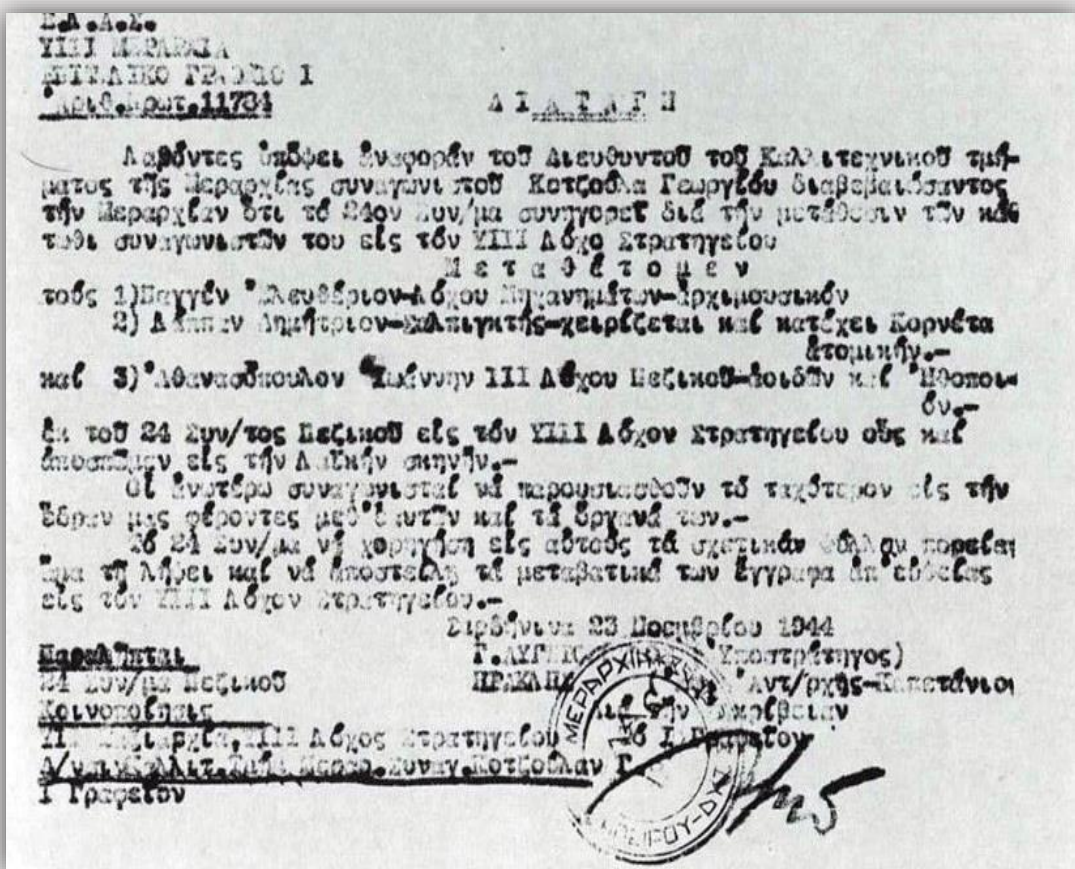 Ε.Λ.Α.Σ.
VIII ΜΕΡΑΡΧΙΑ
ΕΠΙΤΕΛΙΚΟ ΓΡΑΦΕΙΟ Ι
Ἀριθ.Πρωτ.11784
ΔΙΑΤΑΓΗ
Λαβόντες ὑπόψει ἀναφοράν τοῦ Διευθυντοῦ τοῦ Καλλιτεχνικοῦ τμή-
ματος τῆς Μεραρχίας συναγωνιστοῦ Κοτζούλα Γεωργίου διαβεβαιώσαντος
τήν Μεραρχίαν ὅτι τό 24ον Συν/μα συνηγορεῖ διά τήν μετάθεσιν τῶν κάτ
τωθι συναγωνιστῶν του εἰς τόν VIII Λόχο Στρατηγείου
Μεταθέτομεν
τούς 1)Παγγέν Ἐλευθέριον-Λόχου Μηχανημάτων-ἀρχιμουσικόν
2) Λάππαν Δημήτριον-Σαλπιγκτής-χειρίζεται καί κατέχει Κορνέτα
ἀτομικήν.-
καί 3)Ἀθανασόπουλον Ἰωάννην ΙΙΙ Λόχου Πεζικοῦ-ἀοιδόν καί Ἠθοποι-
όν.-
ἐκ τοῦ 24 Συν/τος Πεζικοῦ εἰς τόν VIII Λόχον Στρατηγείου οὕς καί
ἀποσπῶμεν εἰς τήν Λαϊκήν σκηνήν.-
Οἱ ἀνωτέρω συναγωνισταί νά παρουσιασθοῦν τό ταχύτερον εἰς τήν
ἕδραν μας φέροντες μεθ'ἑαυτῶν καί τά ὄργανά των.-
Τό 24 Συν/μα νά χορηγήση εἰς αὐτούς τά σχετικάν φύλλαν πορείας
ἅμα τῆ λήψει καί νά ἀποστείλη τά μεταβατικά των ἔγγραφα ἀπ'εὐθείας
εἰς τόν VIII Λόχον Στρατηγείου.-
23 Νοεμβρίου 1944
Παραλῆπται Γ. Ὑποστράτηγος)
24 Συν/μα Πεζικοῦ Ἀντ/ρχης-Καπετάνιος
Κοινοποίησις Διά τήν ἀκρίβειαν
VIII Λόχος Στρατηγείου Τό Ι Γραφεῖον
Κοτζούλαν Γ.
Ι Γραφεῖον
ΜΕΡΑΡΧΙΑ
ΗΠΕΙΡΟΥ-ΔΥΤ